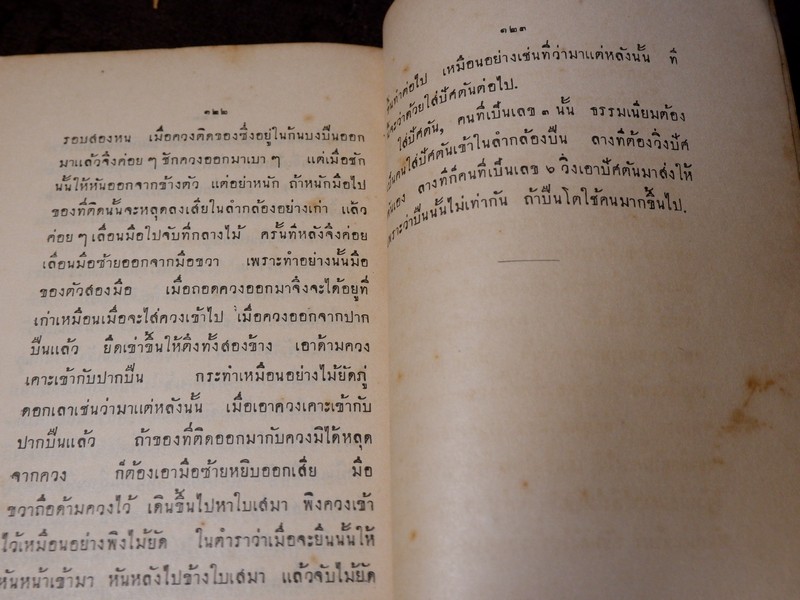 ๑๒๒
รอบสองหน เมื่อควงติดของซึ่งอยู่ในก้นบงปืนออก
มาแล้วจึงค่อย ๆ ชักควงออกมาเบา ๆ แต่เมื่อชัก
นั้นให้หันออกจากข้างตัว แต่อย่าหนัก ถ้าหนักมือไป
ของที่ติดนั้นจะหลุดลงเสียในลำกล้องอย่างเก่า แล้ว
ค่อย ๆ เลื่อนมือไปจับที่กลางไม้ ครั้นทีหลังจึงค่อย
เลื่อนมือซ้ายออกจากมือขวา เพราะทำอย่างนั้นมือ
ของตัวสองมือ เมื่อถอดควงออกมาจึงจะได้อยู่ที่
เก่าเหมือนเมื่อจะใส่ควงเข้าไป เมื่อควงออกจากปาก
ปืนแล้ว ยืดเข่าขึ้นให้ตึงทั้งสองข้าง เอาด้ามควง
เคาะเข้ากับปากปืน กระทำเหมือนอย่างไม้ยัดภู่
ดอกเลาเช่นว่ามาแต่หลังนั้น เมื่อเอาควงเคาะเข้ากับ
ปากปืนแล้ว ถ้าของที่ติดออกมากับควงมิได้หลุด
จากควง ก็ต้องเอามือซ้ายหยิบออกเสีย มือ
ขวาถือด้ามควงไว้ เดินขึ้นไปหาใบเสมา พิงควงเข้า
ไว้เหมือนอย่างพิงไม้ยัด ในตำราว่าเมื่อจะยืนนั้นให้
หันหน้าเข้ามา หันหลังไปข้างใบเสมา แล้วจับไม้ยัด
๑๒๓
ทำต่อไป เหมือนอย่างเช่นที่ว่ามาแต่หลังนั้น ที่
จะว่าด้วยใส่ปัศตันต่อไป.
ใส่ปัศตัน, คนที่เป็นเลข ๓ นั้น ธรรมเนียมต้อง
เป็นคนใส่ปัศตันเข้าในลำกล้องปืน ลางทีต้องวิ่งปัศ
ตันเอง ลางทีก็คนที่เป็นเลข ๖ วิ่งเอาปัศตันมาส่งให้
เพราะว่าปืนนั้นไม่เท่ากัน ถ้าปืนโตใช้คนมากขึ้นไป.